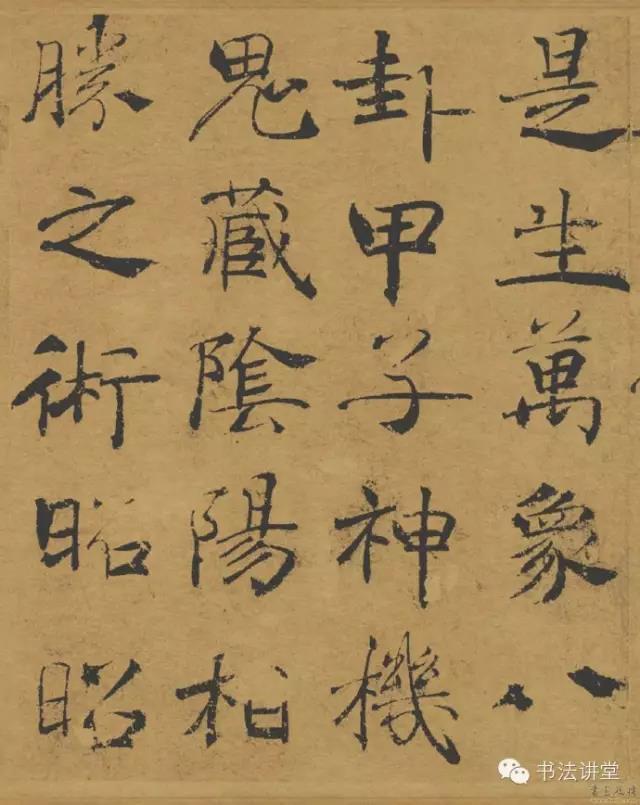 是生萬象八
卦甲子神機
鬼藏陰陽相
勝之術昭
昭
书法讲堂